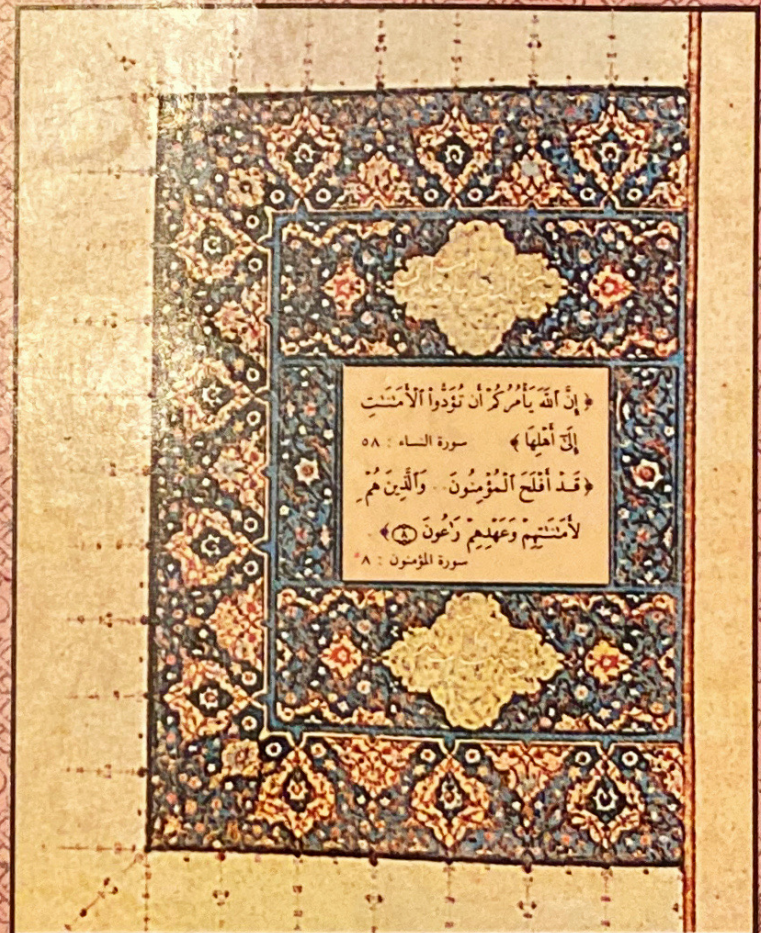 ﴿ إِنَّ ٱللَّهَ يَأْمُرُكُمْ أَن تُؤَدُّوا۟ ٱلْأَمَـٰنَـٰتِ
إِلَىٰٓ أَهْلِهَا ﴾ سورة النساء : ٥٨
﴿ قَدْ أَفْلَحَ ٱلْمُؤْمِنُونَ .. وَٱلَّذِينَ هُمْ
لِأَمَـٰنَـٰتِهِمْ وَعَهْدِهِمْ رَٰعُونَ ۝٨ ﴾ .
سورة المؤمنون : ٨